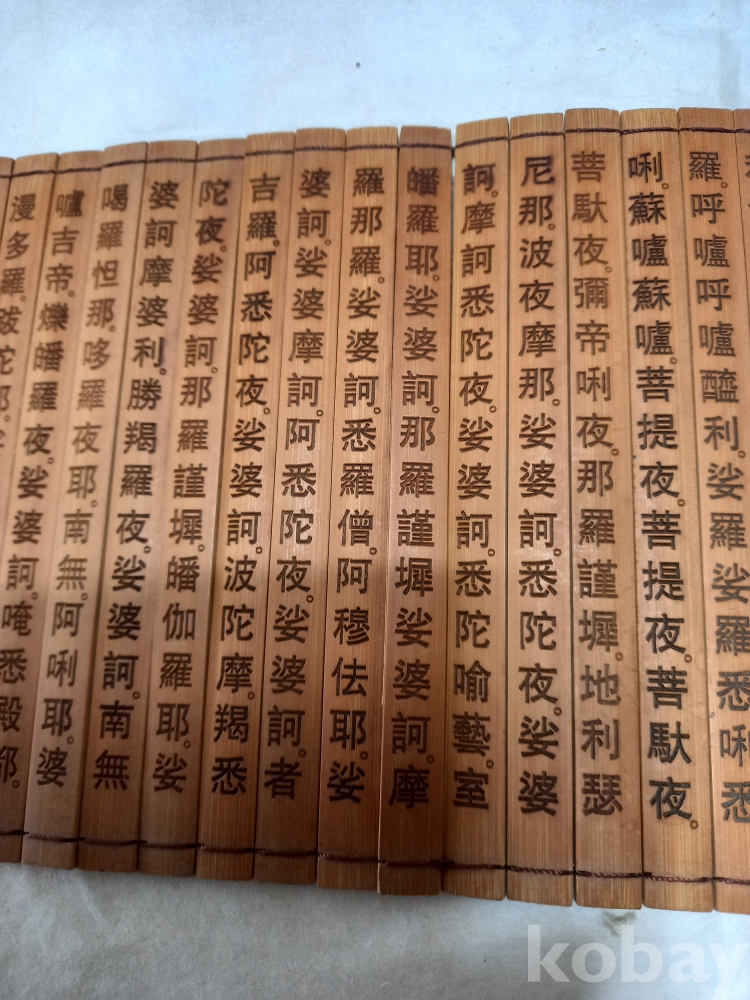 羅。呼嚧呼嚧醯利。娑羅娑羅悉唎悉
唎。蘇嚧蘇嚧。菩提夜。菩提夜。菩馱夜。
菩馱夜。彌帝唎夜。那羅謹墀。地利瑟
尼那。波夜摩那。娑婆訶。悉陀夜。娑婆
訶。摩訶悉陀夜。娑婆訶。悉陀喻藝。室
皤羅耶。娑婆訶。那羅謹墀娑婆訶。摩
羅那羅。娑婆訶。悉羅僧。阿穆佉耶。娑
婆訶。娑婆摩訶。阿悉陀夜。娑婆訶。者
吉羅。阿悉陀夜。娑婆訶。波陀摩。羯悉
陀夜。娑婆訶。那羅謹墀。皤伽羅耶。娑
婆訶摩婆利。勝羯羅夜。娑婆訶。南無
喝羅怛那。哆羅夜耶。南無。阿唎耶。婆
嚧吉帝。爍皤羅夜。娑婆訶。唵悉殿都。
漫多羅。跋陀耶。
kobay